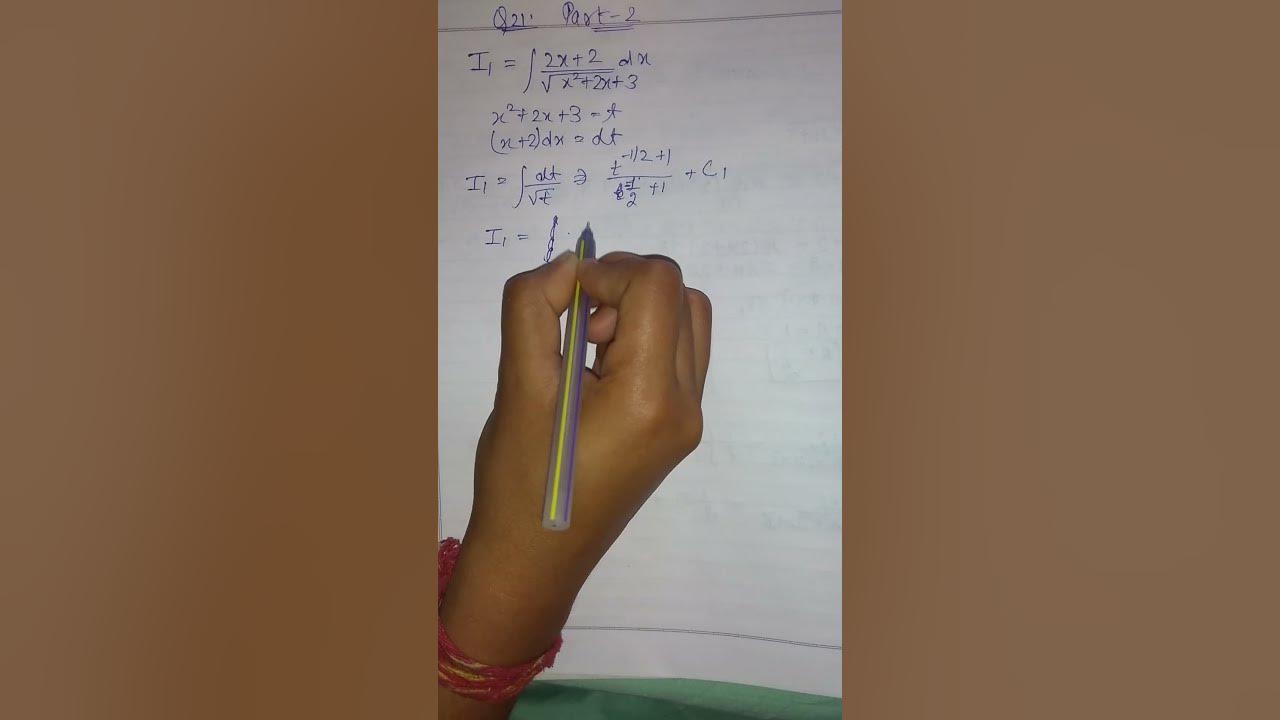 Q21. Part-2
I₁ = ∫ 2x+2 / √x²+2x+3 dx
x²+2x+3 = t
(x+2)dx = dt
I₁ = ∫ dt/√t ⇒ t^(-1/2+1) / -1/2 +1 + C₁
I₁ =